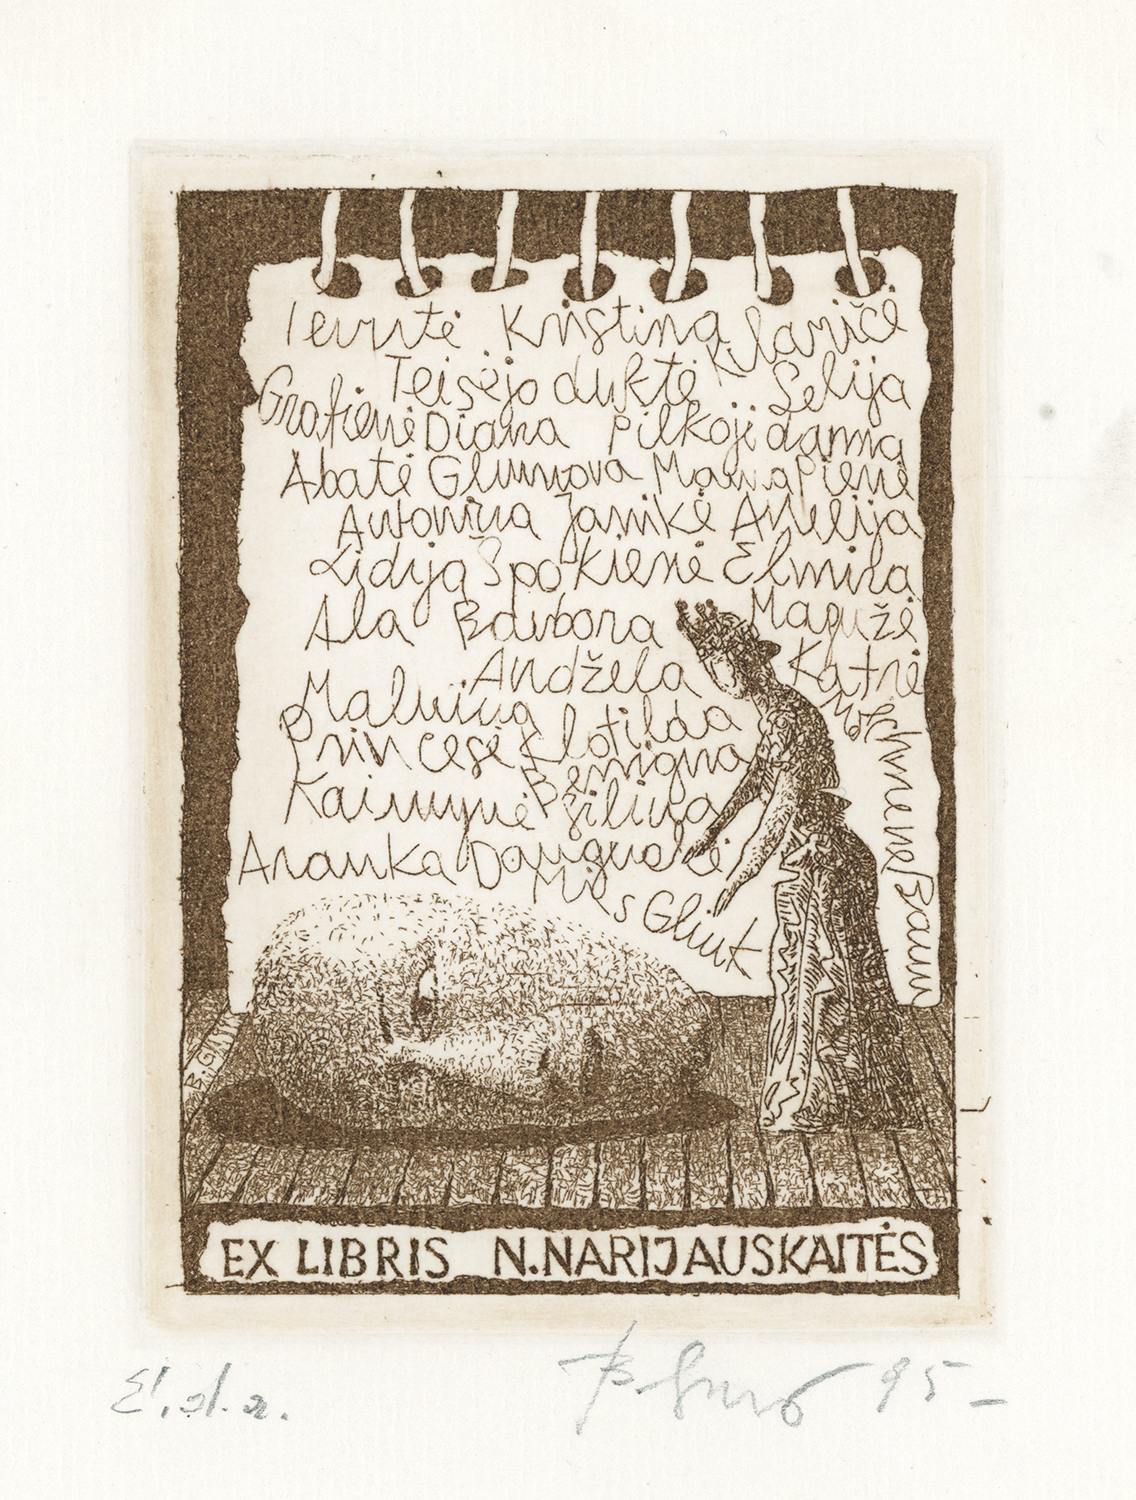 Ievutė Kristina Klaričė
Teisėjo duktė Selija
Grafienė Diana Pilkoji dama
Abatė Glumova Marija Pienė
Antonina Janikė Anelija
Lidija Spokienė Elmira
Ala Barbora Magužė
Andžela Katrė
Malvina
Princesė Klotilda
Benigna
Kaimynė Bžilina
Aranka
Mis Gliuk
Baum
B. GIN
EX LIBRIS N. NARIJAUSKAITĖS
E. d. a. 95